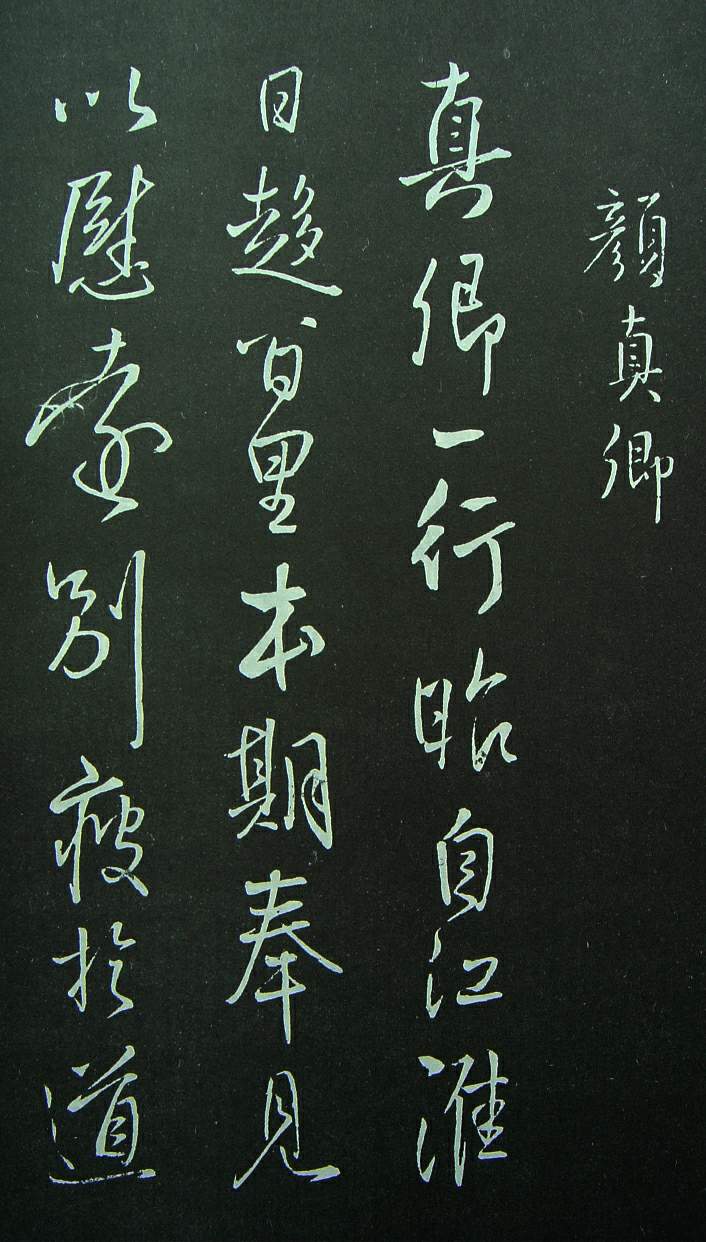 顏真卿
真卿一行昭自江淮
日趍百里本期奉見
以慰遠別疲扵道